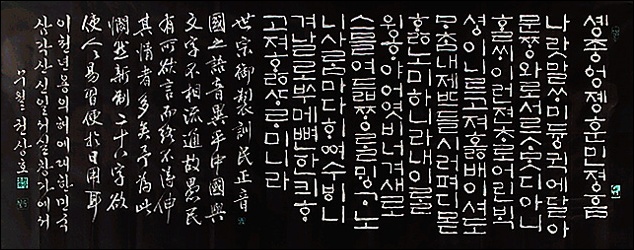 솅종엉젱훈민졍흠
나랏말ᄊᆞ미듕귁에달아
문ᄍᆞᆼ와로서르ᄉᆞᄆᆞᆺ디아니
ᄒᆞᆯᄊᆡ이런젼ᄎᆞ로어린ᄇᆡᆨ
셩이니르고져홇배이셔도
ᄆᆞᄎᆞᆷ내제ᄠᅳ들시러펴디몯
ᄒᆞᇙ노미하니라내이ᄅᆞᆯ
윙ᄒᆞ야어엿비너겨새로
스믈여듧ᄍᆞᆼᄅᆞᆯᄆᆡᇰᄀᆞ노
니사ᄅᆞᆷ마다ᄒᆡᅇᅧ수ᄫᅵ니
겨날로ᄡᅮ메뼌한킈ᄒᆞ
고져ᄒᆞᇙᄯᆞᄅᆞ미니라
世宗御製訓民正音
國之語音異乎中國與
文字不相流通故愚民
有所欲言而終不得伸
其情者多矣予為此
憫然新制二十八字欲
使人易習便於日用耳
이천년봄의허에대한민국
삼각산신일서실창가에서
권상호